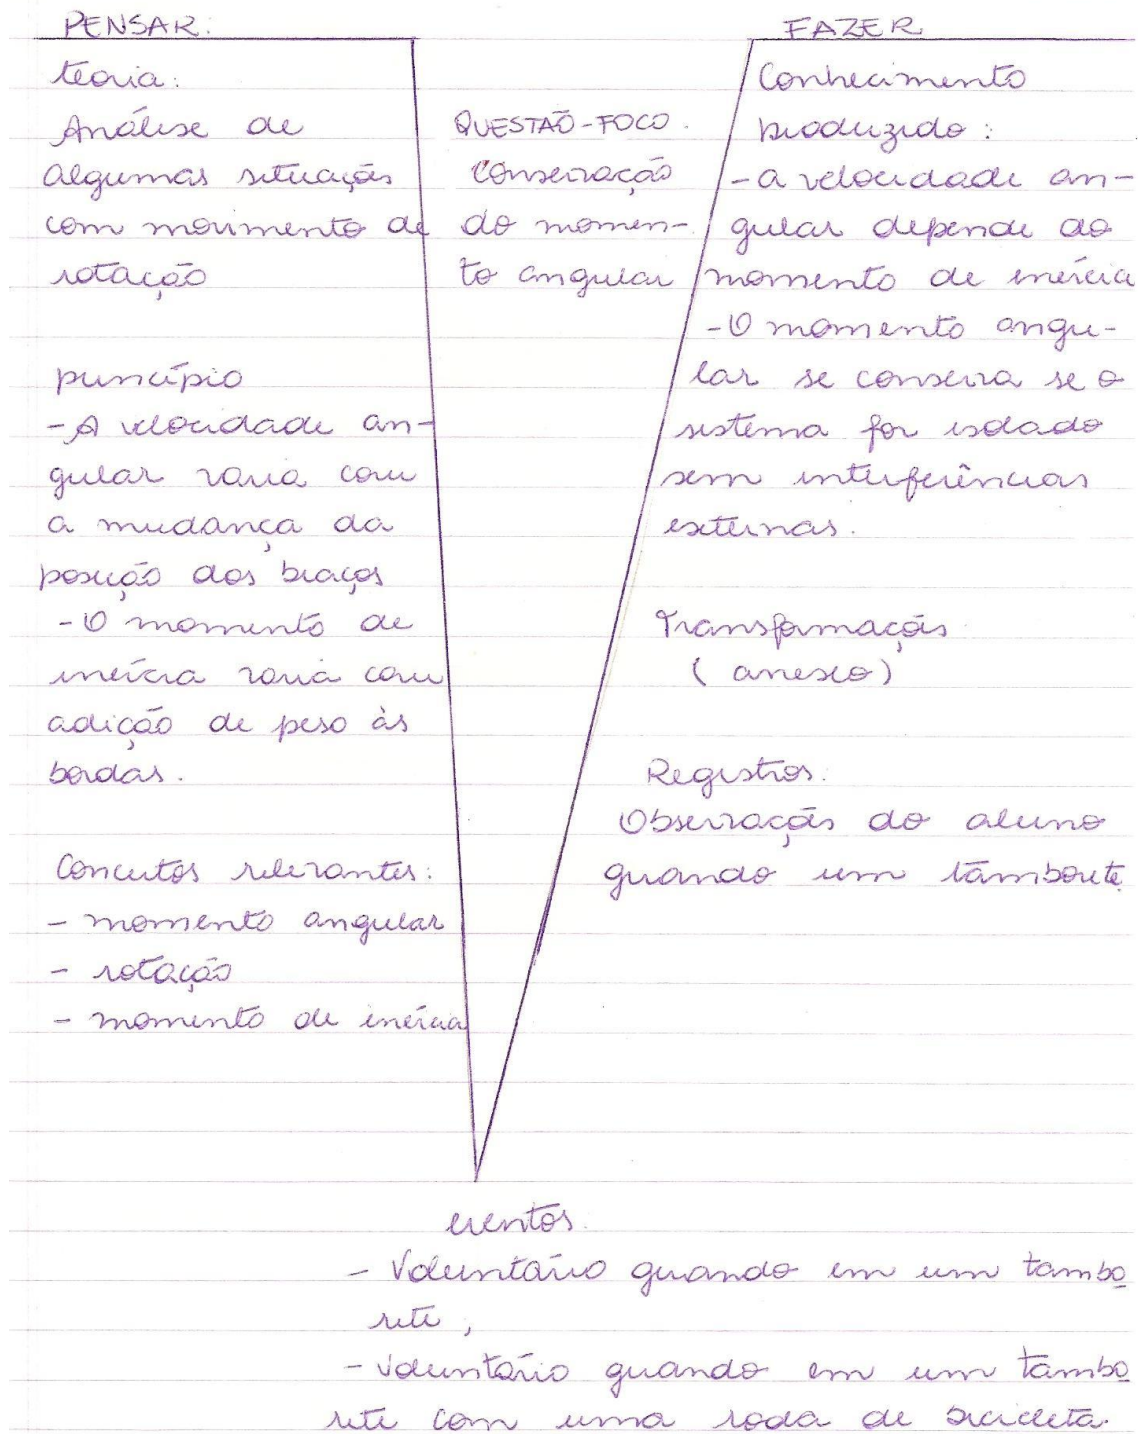 PENSAR:
teoria:
Análise de
algumas situações
com movimento de
rotação
princípio
- A velocidade an-
gular varia com
a mudança da
posição dos braços
- O momento de
inércia varia com
adição de peso às
bordas.
Conceitos relevantes:
- momento angular
- rotação
- momento de inércia
QUESTÃO-FOCO.
Conservação
do momen-
to angular
FAZER
Conhecimento
produzido:
- a velocidade an-
gular depende do
momento de inércia
- O momento angu-
lar se conserva se o
sistema for isolado
sem interferências
externas.
Transformações
(anexo)
Registros:
Observações do aluno
girando um tamborete.
eventos.
- Voluntário girando em um tambo
rete,
- Voluntário girando em um tambo
rete com uma roda de bicicleta.